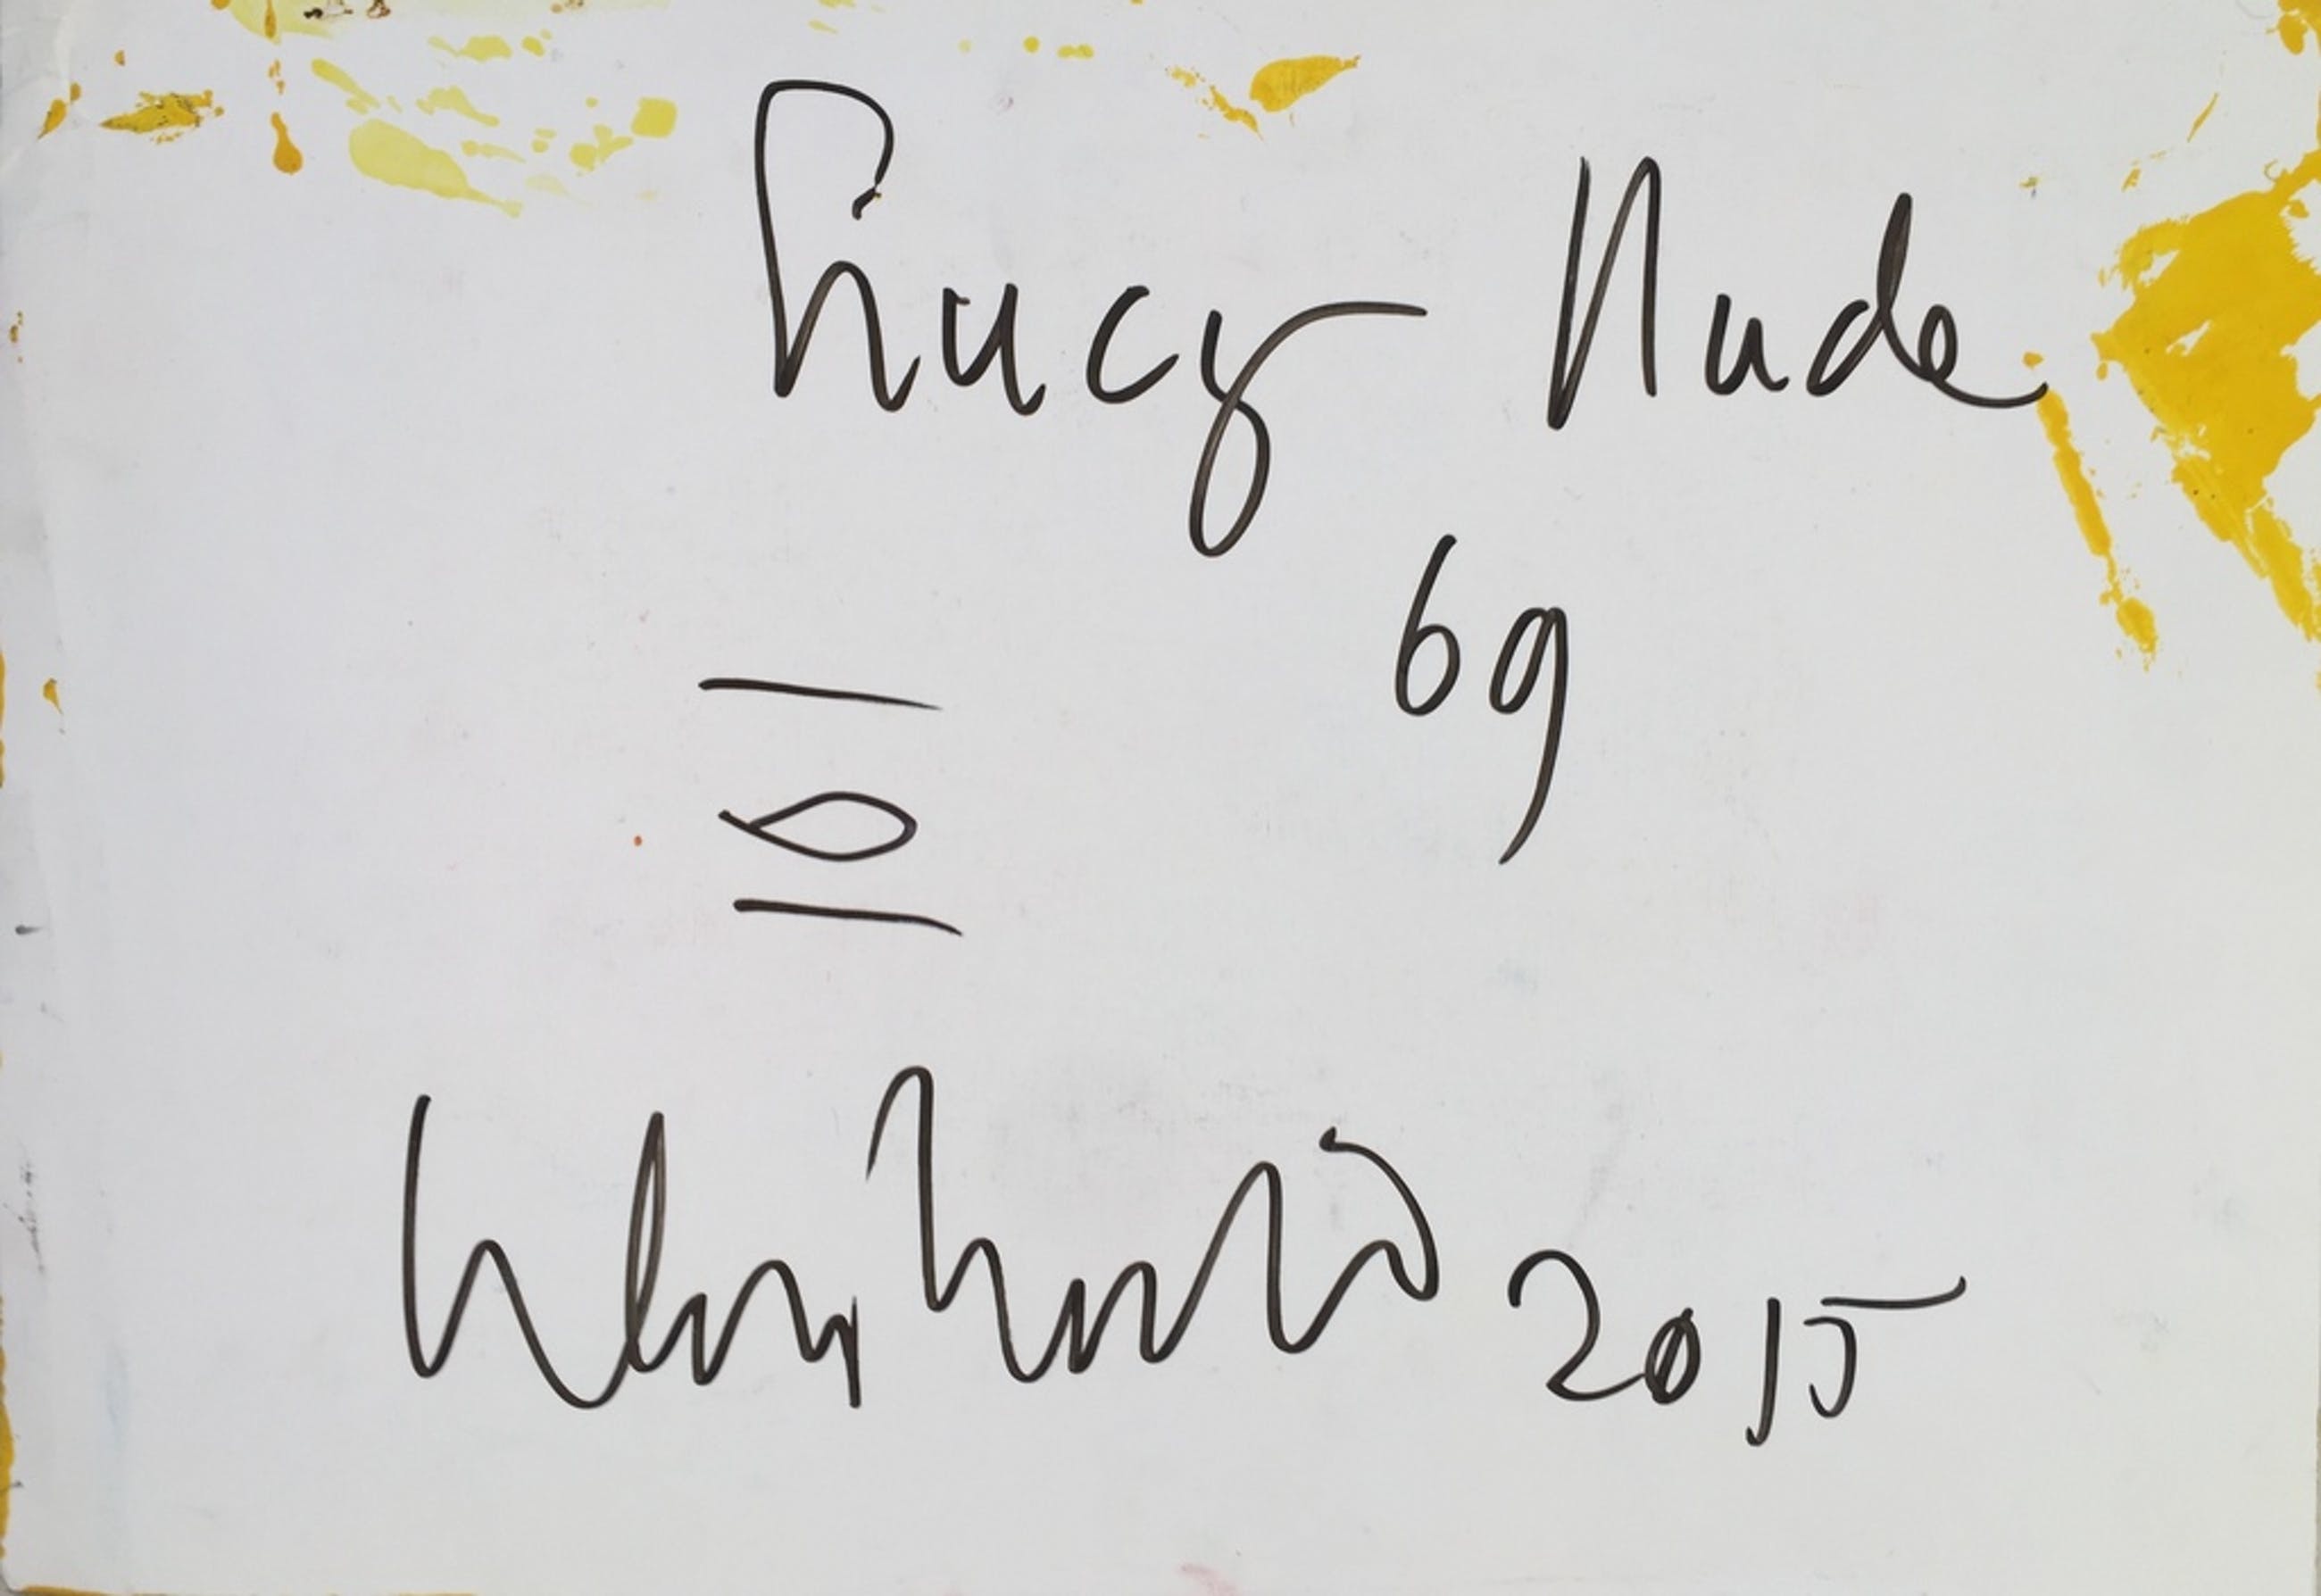 Lucy Nude
69
2015